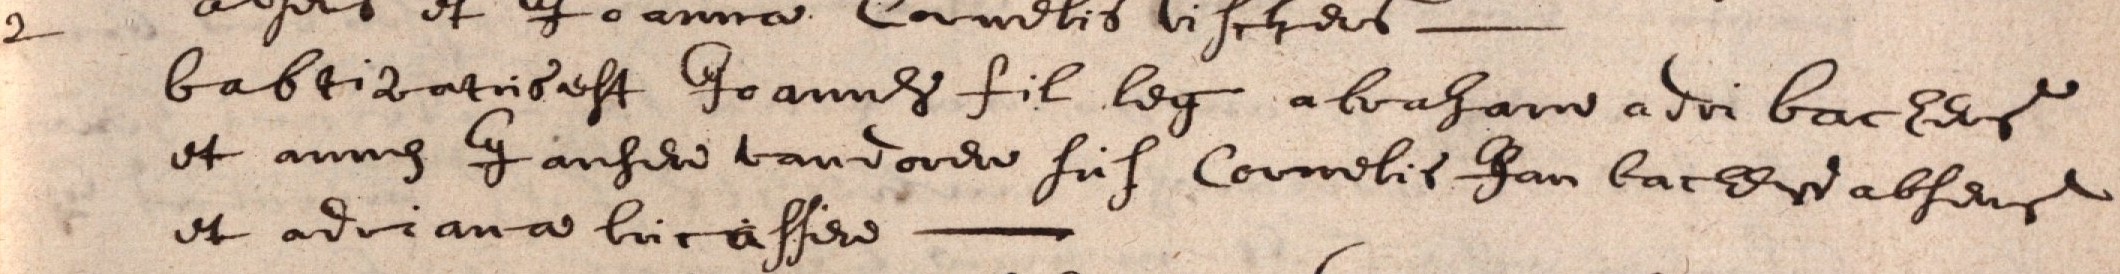 absens et Joanna Cornelis vischers
2
babtizatus est Joannes fil leg abraham adri backers
et anneh Jansen vandoren sus Cornelis Jan backers absens
et adriana lucassen